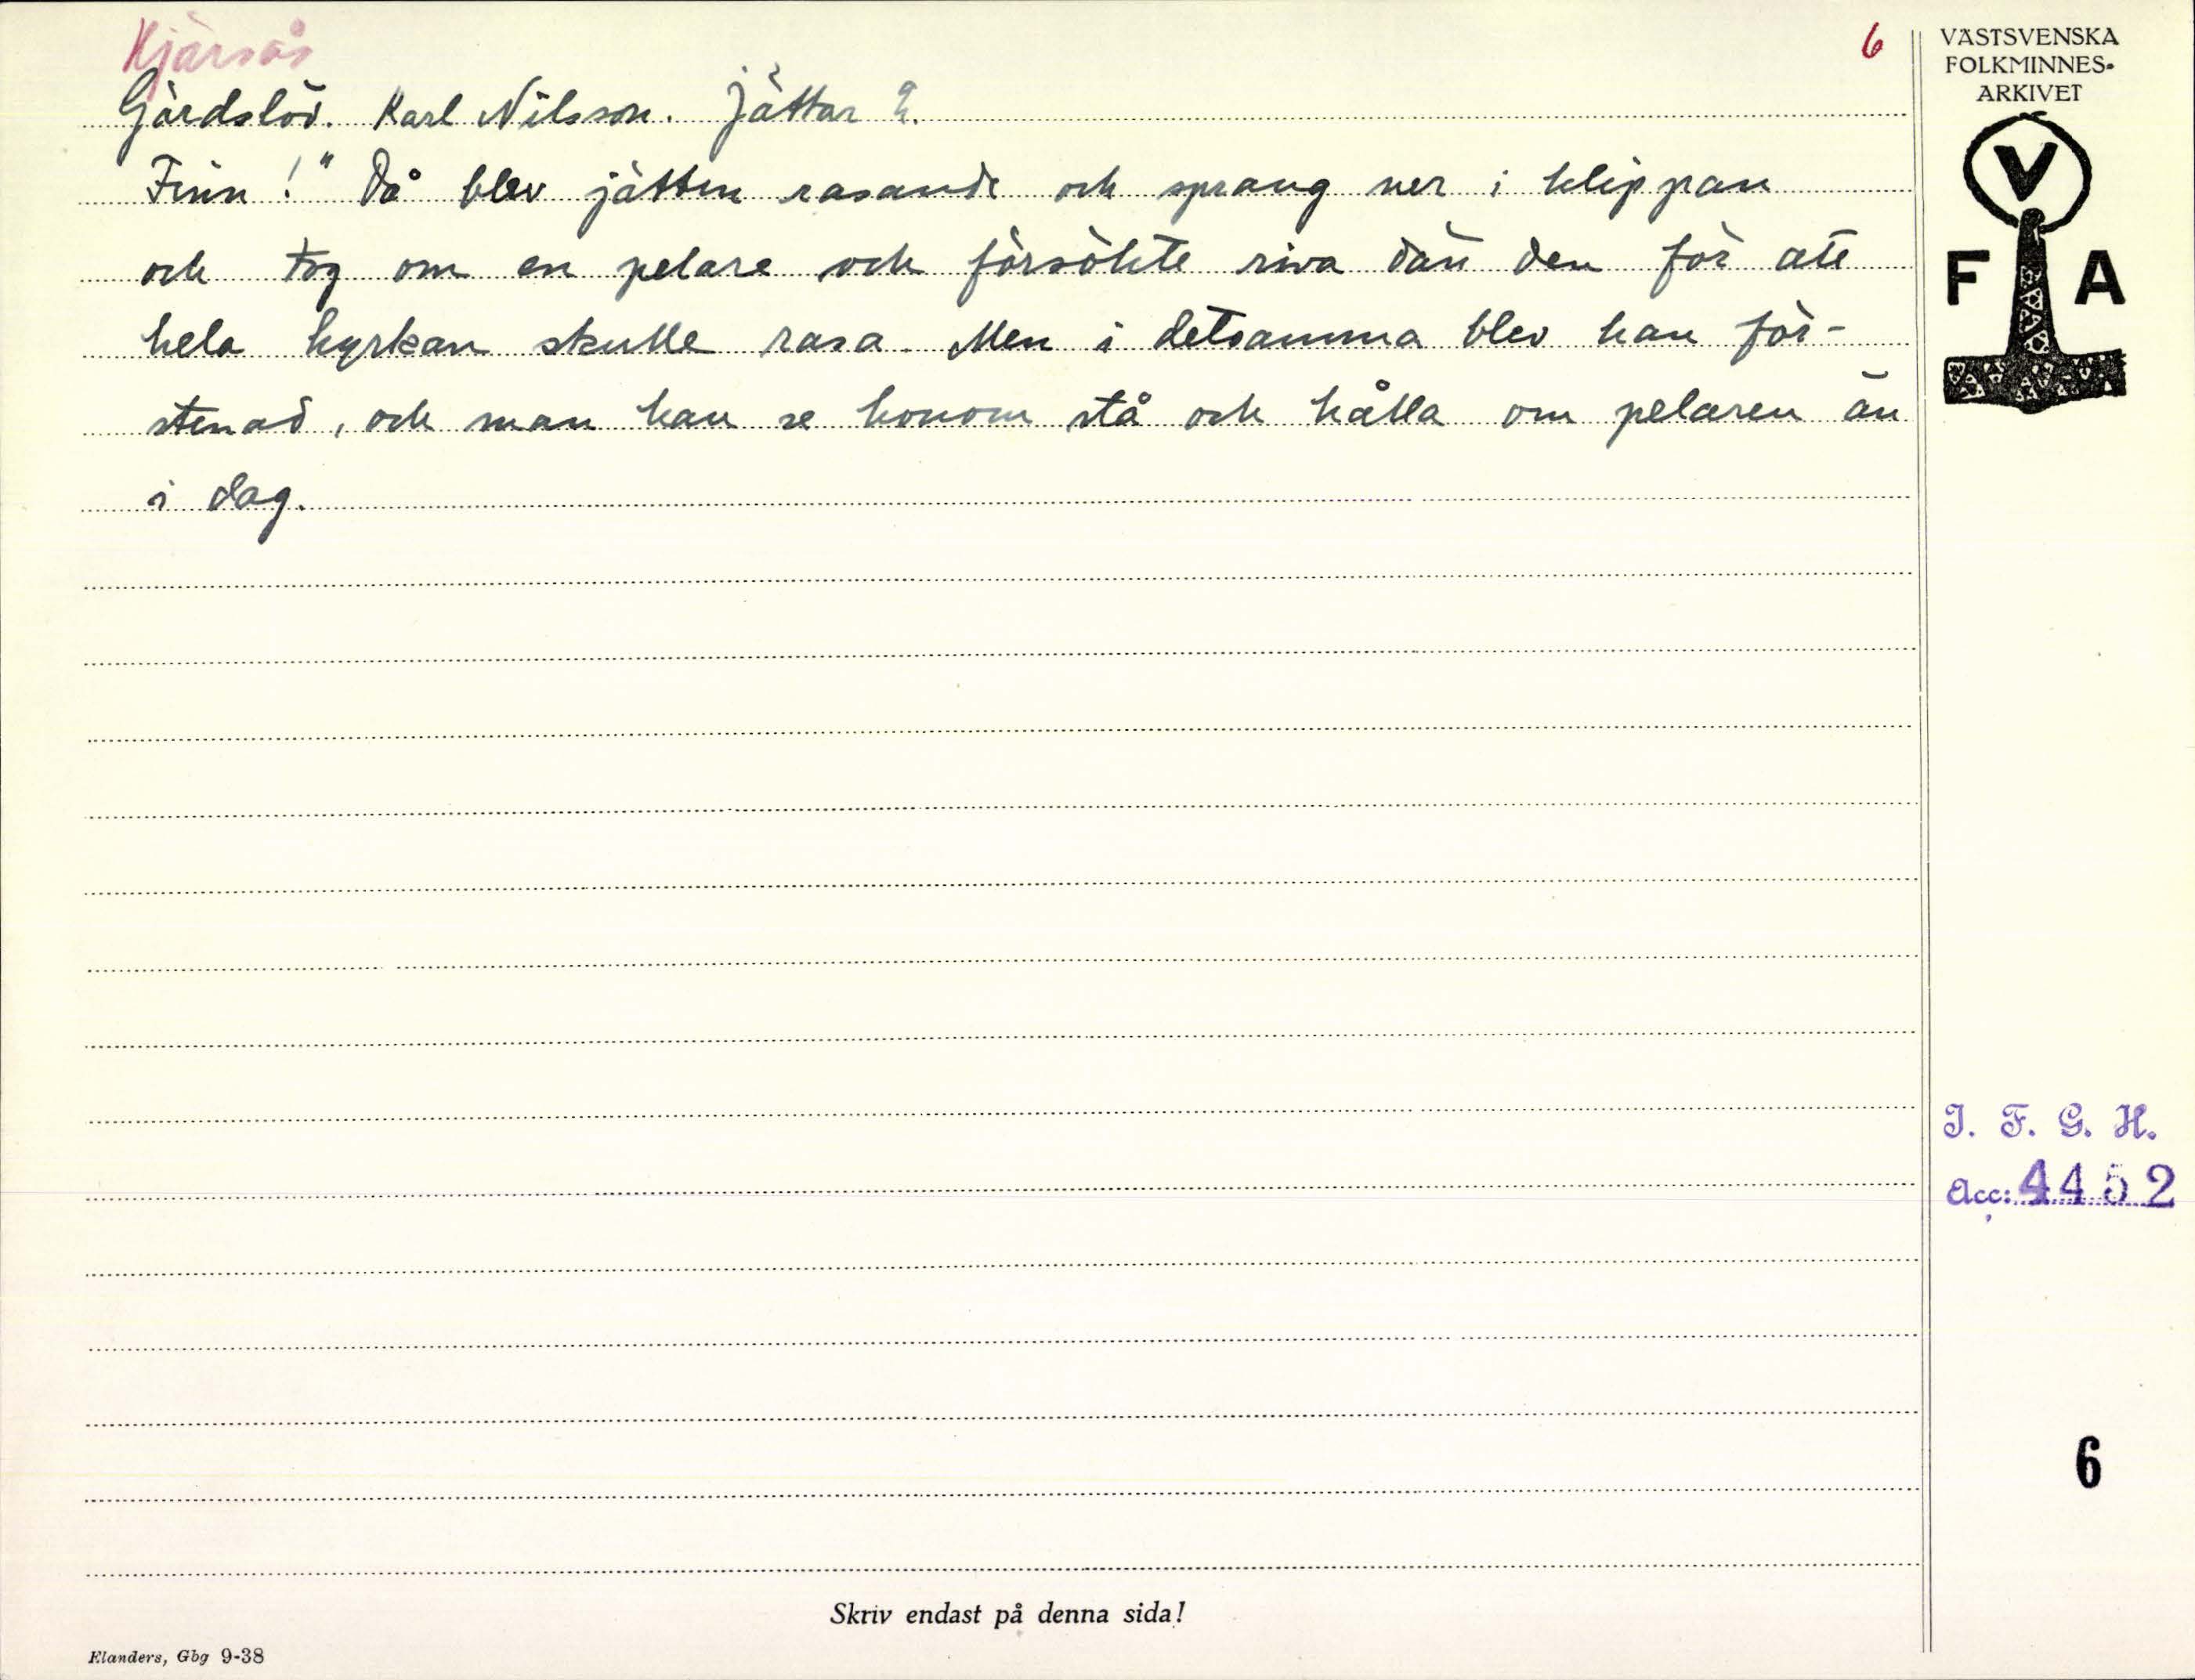 Kjärsås
6
Gärdslöv. Karl Nilsson. Jättar 2.
Finn!" Då blev jätten rasande och sprang ner i klippan
och tog om en pelare och försökte riva dän den för att
hela kyrkan skulle rasa. Men i detsamma blev han för-
stenad, och man kan se honom stå och hålla om pelaren än
i dag.
VÄSTSVENSKA
FOLKMINNES-
ARKIVET
V
F A
I. F. G. H.
Acc: 4452
6
Skriv endast på denna sida!
Elanders, Gbg 9-38